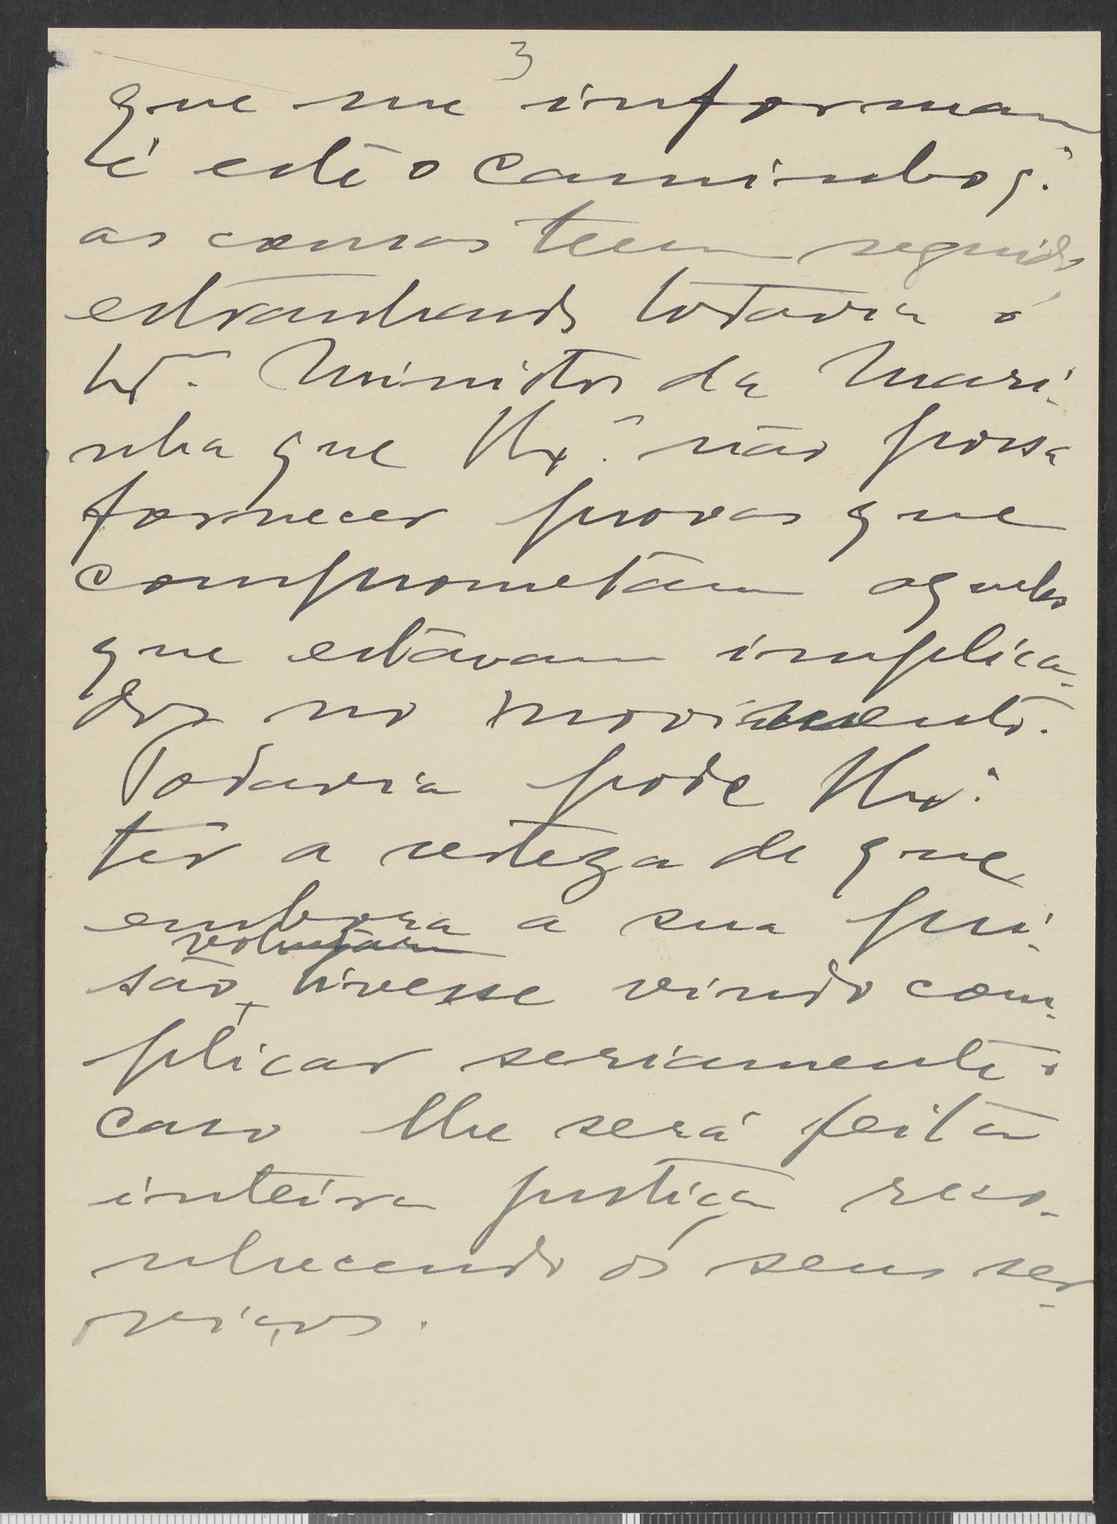 3
que me informam
é este o caminho q.
as cousas teem seguido
estranhando todavia o
Sr. Ministro da Mari-
nha que V. Ex.ª não possa
fornecer provas que
comprometam aqueles
que estavam implica-
dos no movimento.
Todavia pode V. Ex.ª
ter a certeza de que
embora a sua pri-
voluntaria
são, tivesse vindo com-
plicar seriamente o
caso lhe será feita
inteira justiça reco-
nhecendo os seus ser-
viços.